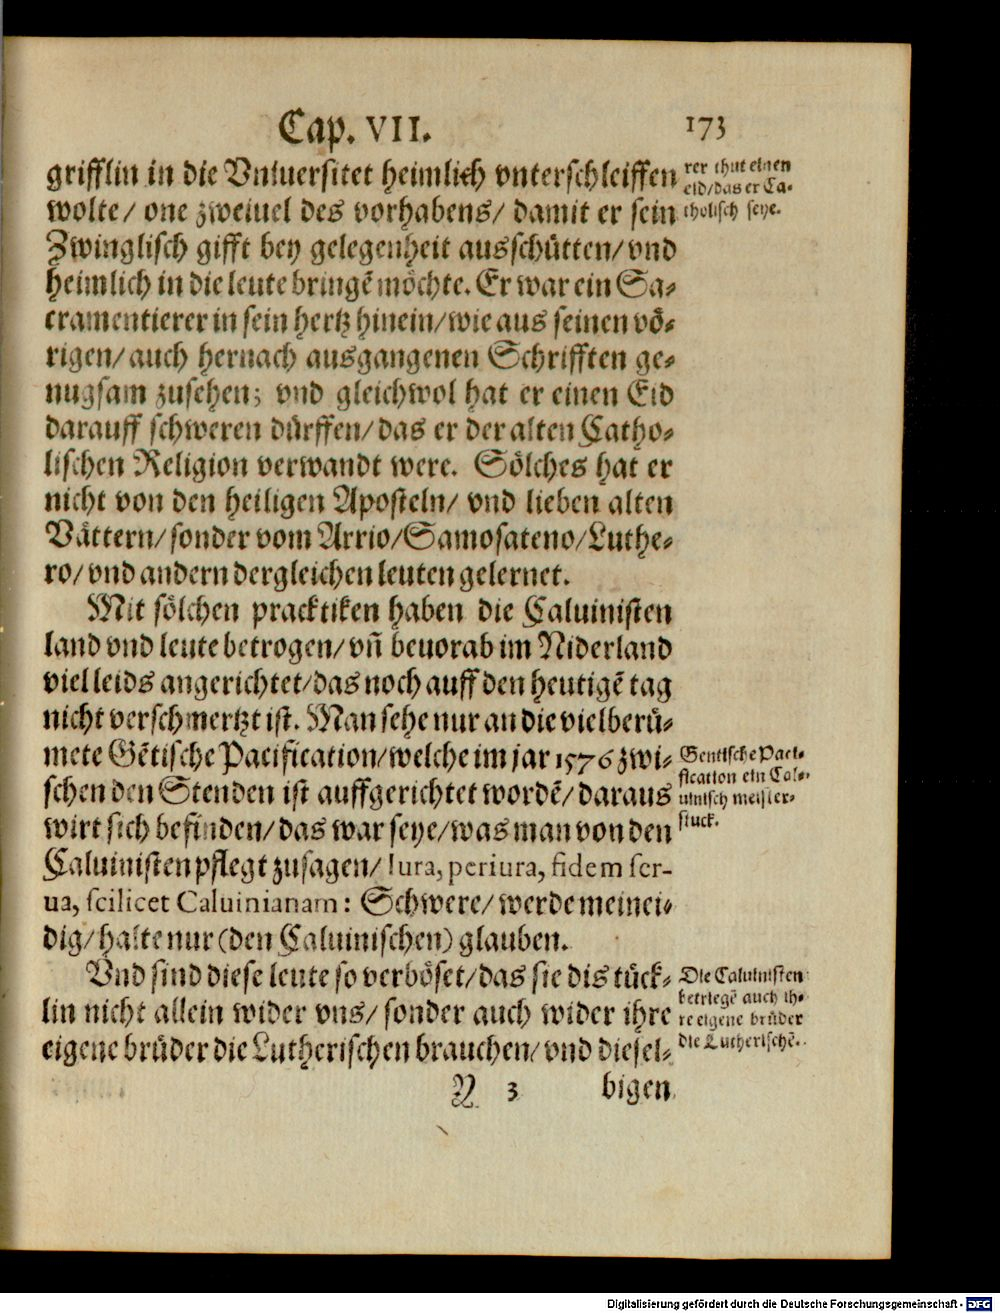 Cap. VII. 173
grifflin in die Vniuersitet heimlich vnterschleiffen
wolte/ one zweiuel des vorhabens/ damit er sein
Zwinglisch gifft bey gelegenheit ausschütten/ vnd
heimlich in die leute bringẽ möchte. Er war ein Sa-
cramentierer in sein hertz hinein/ wie aus seinen vö-
rigen/ auch hernach ausgangenen Schrifften ge-
nugsam zusehen; vnd gleichwol hat er einen Eid
darauff schweren dürffen/ das er der alten Catho-
lischen Religion verwandt were. Sölches hat er
nicht von den heiligen Aposteln/ vnd lieben alten
Vättern/ sonder vom Arrio/ Samosateno/ Luthe-
ro/ vnd andern dergleichen leuten gelernet.
rer thut einen
eid/ das er Ca-
tholisch seye.
Mit sölchen practiken haben die Caluinisten
land vnd leute betrogen/ vñ beuorab im Niderland
viel leids angerichtet/ das noch auff den heutigẽ tag
nicht verschmertzt ist. Man sehe nur an die vielberü-
mete Gẽtische Pacification/ welche im jar 1576 zwi-
schen den Stenden ist auffgerichtet wordẽ/ daraus
wirt sich befinden/ das war seye/ was man von den
Caluinisten pflegt zusagen/ Iura, periura, fidem ser-
ua, scilicet Caluinianam: Schwere/ werde meinei-
dig/ halte nur (den Caluinischen) glauben.
Gentische Paci-
fication ein Cal-
uinisch meister-
stuck.
Vnd sind diese leute so verböset/ das sie dis tück-
lin nicht allein wider vns/ sonder auch wider ihre
eigene brüder die Lutherischen brauchen/ vnd diesel-
Die Caluinisten
betriegẽ auch ih-
re eigene brüder
die Lutherischẽ.
Y 3 bigen
Digitalisierung gefördert durch die Deutsche Forschungsgemeinschaft - DFG